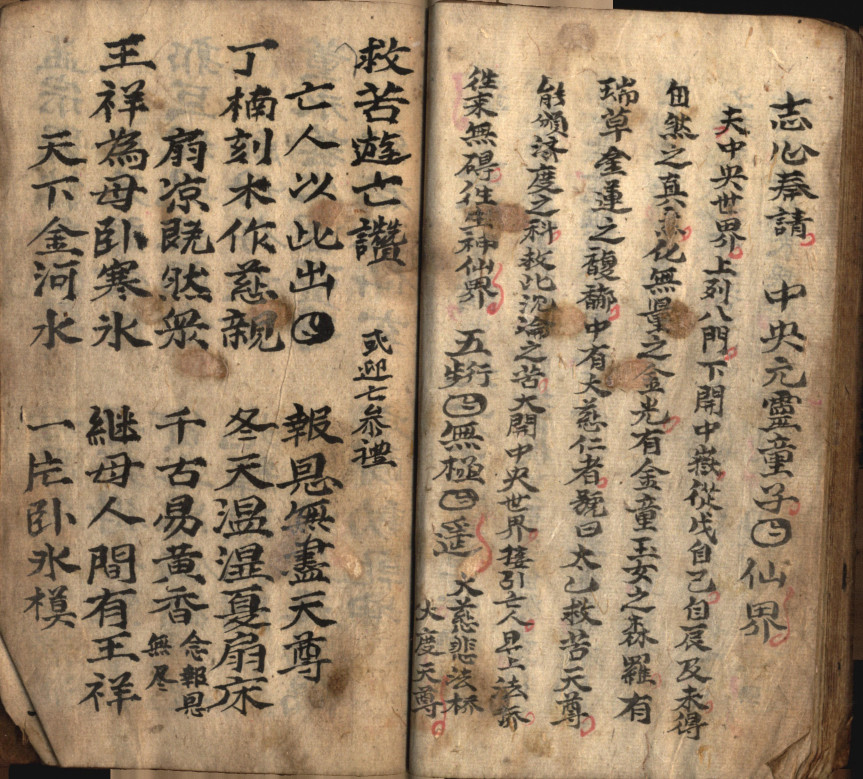 志心奉請 中央元靈童子㊁仙界
夫中央世界上列八門下開中嶽從戊自己自辰及未得
自然之真炁化無量之金光有金童玉女之森羅有
瑞草金蓮之馥郁中有大慈仁者號曰太乙救苦天尊
能頒濟度之科救此沉淪之苦大開中央世界接引亡人早上法橋
往來無碍往生神仙界 五步行 無極 遥 大慈悲法橋
大度天尊
救苦遊亡讚 或迎七參禮
亡人以此出 報恩無盡天尊
丁楠刻木作慈親 冬天温湿夏扇床
扇凉既然衆 千古昜黄香 念報恩
無尽
王祥為母卧寒氷 継母人間有王祥
天下金河水 一片卧氷模